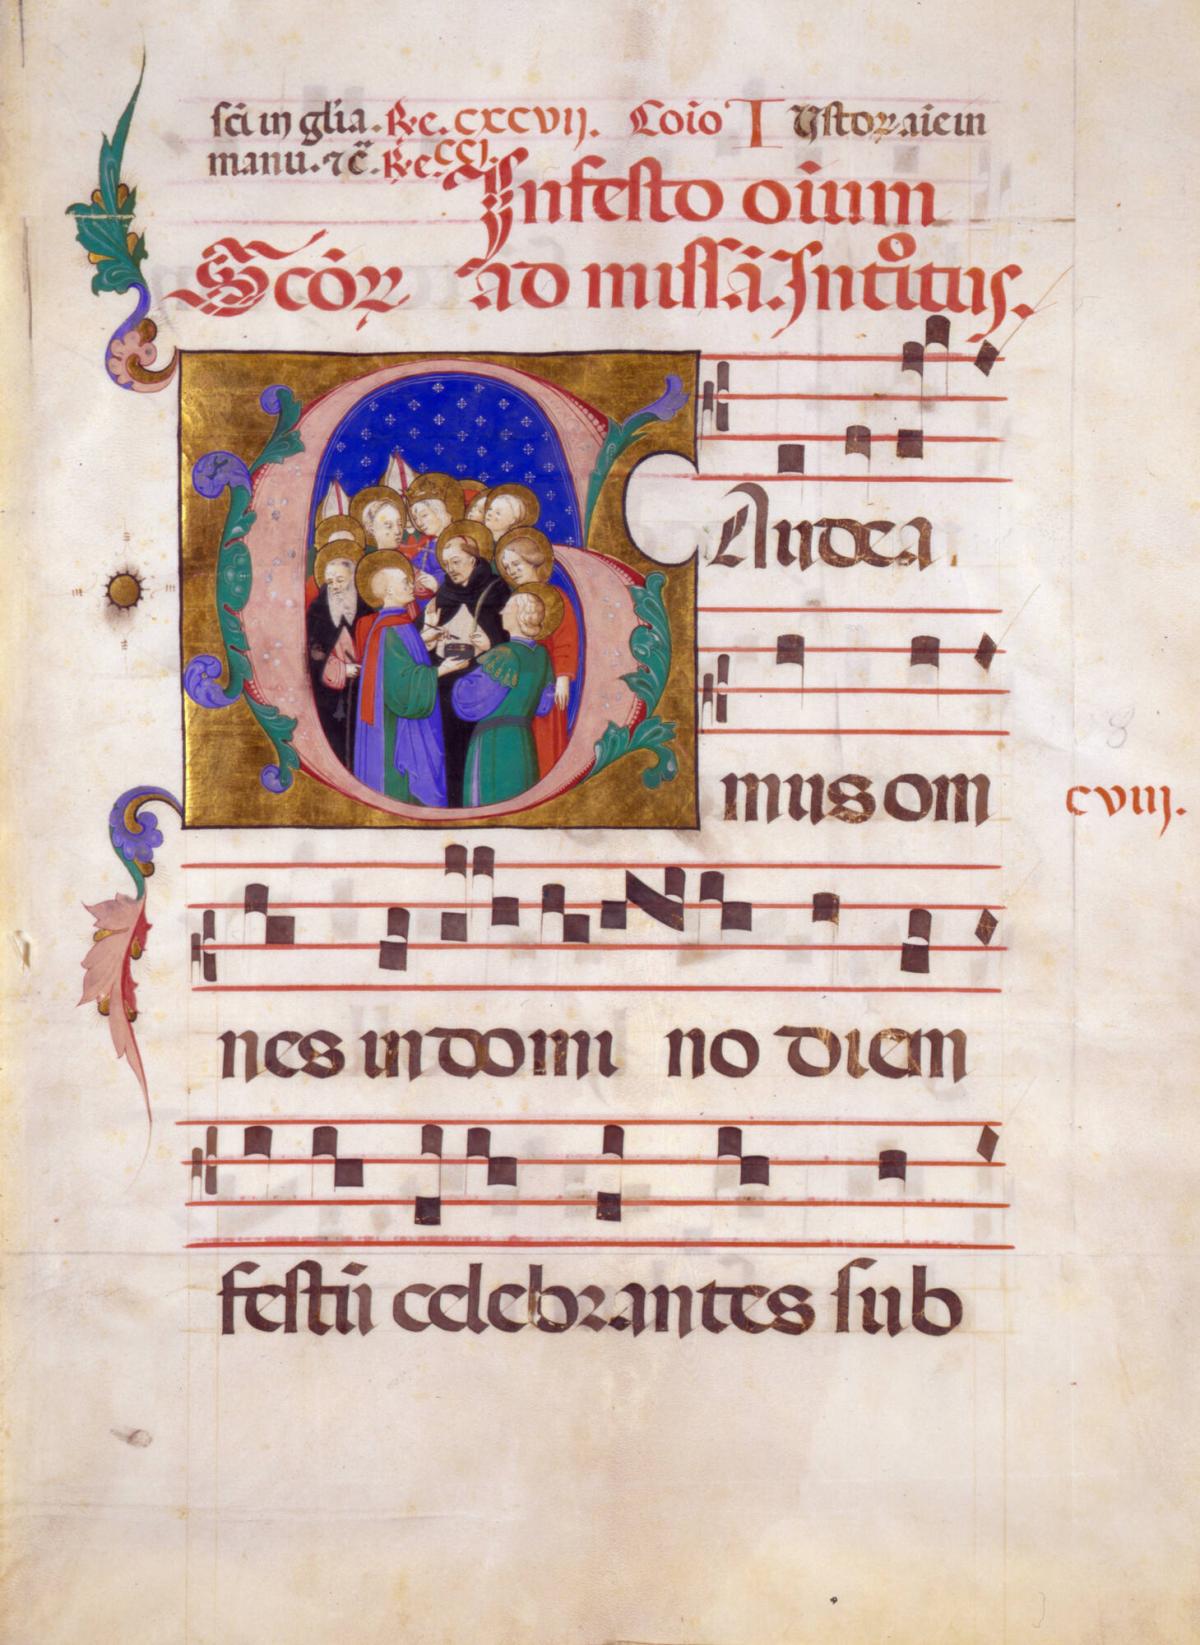 sci in glia. Re. CXCVIJ. Coio IUstoꝝ aie in
manu. ⁊c̄. Re. CCI.
In festo oium
Scōꝝ ad missā. Introitus.
GAudea
mus om
CVIIJ.
nes in domi no diem
festū celebrantes sub